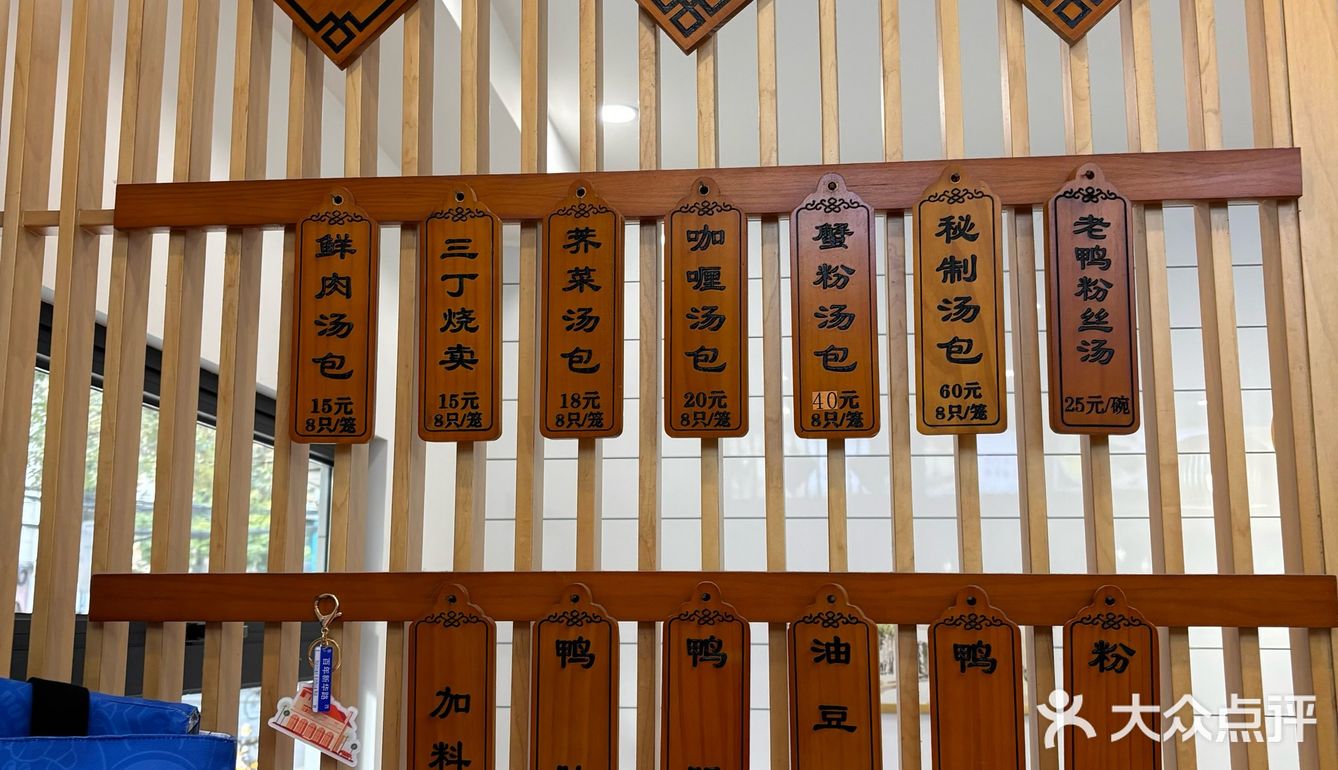 鲜肉汤包
15元
8只/笼
三丁烧卖
15元
8只/笼
荠菜汤包
18元
8只/笼
咖喱汤包
20元
8只/笼
蟹粉汤包
40元
8只/笼
秘制汤包
60元
8只/笼
老鸭粉丝汤
25元/碗
加料
鸭
鸭
油豆
鸭
粉
百年新华路
大众点评